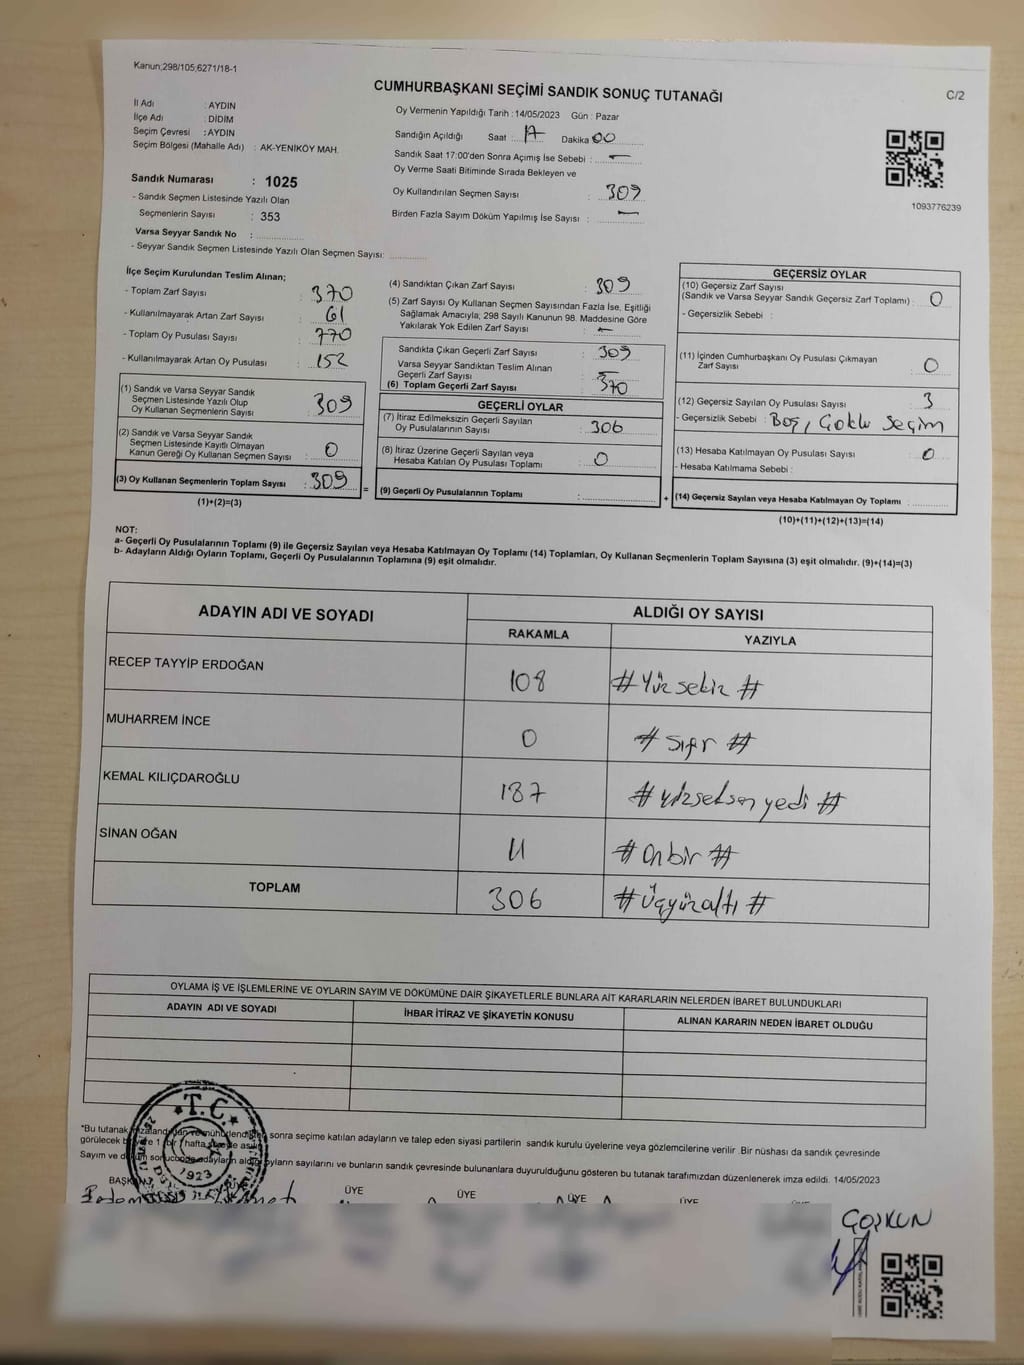 Kanun;298/105;6271/18-1
CUMHURBAŞKANI SEÇİMİ SANDIK SONUÇ TUTANAĞI
C/2
İl Adı : AYDIN
İlçe Adı : DİDİM
Seçim Çevresi : AYDIN
Seçim Bölgesi (Mahalle Adı) : AK-YENİKÖY MAH.
Sandık Numarası : 1025
- Sandık Seçmen Listesinde Yazılı Olan
Seçmenlerin Sayısı : 353
Varsa Seyyar Sandık No :
- Seyyar Sandık Seçmen Listesinde Yazılı Olan Seçmen Sayısı:
Oy Vermenin Yapıldığı Tarih : 14/05/2023 Gün : Pazar
Sandığın Açıldığı Saat : 17 Dakika 00
Sandık Saat 17:00'den Sonra Açımış İse Sebebi : —
Oy Verme Saati Bitiminde Sırada Bekleyen ve
Oy Kullandırılan Seçmen Sayısı : 309
Birden Fazla Sayım Döküm Yapılmış İse Sayısı : —
1093776239
İlçe Seçim Kurulundan Teslim Alınan;
- Toplam Zarf Sayısı : 370
- Kullanılmayarak Artan Zarf Sayısı : 61
- Toplam Oy Pusulası Sayısı : 770
- Kullanılmayarak Artan Oy Pusulası : 152
(1) Sandık ve Varsa Seyyar Sandık
Seçmen Listesinde Yazılı Olup
Oy Kullanan Seçmenlerin Sayısı : 309
(2) Sandık ve Varsa Seyyar Sandık
Seçmen Listesinde Kayıtlı Olmayan
Kanun Gereği Oy Kullanan Seçmen Sayısı : 0
(3) Oy Kullanan Seçmenlerin Toplam Sayısı : 309
(1)+(2)=(3)
=
(4) Sandıktan Çıkan Zarf Sayısı : 309
(5) Zarf Sayısı Oy Kullanan Seçmen Sayısından Fazla İse, Eşitliği
Sağlamak Amacıyla; 298 Sayılı Kanunun 98. Maddesine Göre
Yakılarak Yok Edilen Zarf Sayısı : —
Sandıkta Çıkan Geçerli Zarf Sayısı : 309
Varsa Seyyar Sandıktan Teslim Alınan
Geçerli Zarf Sayısı : —
(6) Toplam Geçerli Zarf Sayısı : 370
GEÇERLİ OYLAR
(7) İtiraz Edilmeksizin Geçerli Sayılan
Oy Pusulalarının Sayısı : 306
(8) İtiraz Üzerine Geçerli Sayılan veya
Hesaba Katılan Oy Pusulası Toplamı : 0
(9) Geçerli Oy Pusulalarının Toplamı :
+
GEÇERSİZ OYLAR
(10) Geçersiz Zarf Sayısı
(Sandık ve Varsa Seyyar Sandık Geçersiz Zarf Toplamı) : 0
- Geçersizlik Sebebi :
(11) İçinden Cumhurbaşkanı Oy Pusulası Çıkmayan
Zarf Sayısı : 0
(12) Geçersiz Sayılan Oy Pusulası Sayısı : 3
- Geçersizlik Sebebi : Boş, Çoklu Seçim
(13) Hesaba Katılmayan Oy Pusulası Sayısı : 0
- Hesaba Katılmama Sebebi :
(14) Geçersiz Sayılan veya Hesaba Katılmayan Oy Toplamı :
(10)+(11)+(12)+(13)=(14)
NOT:
a- Geçerli Oy Pusulalarının Toplamı (9) ile Geçersiz Sayılan veya Hesaba Katılmayan Oy Toplamı (14) Toplamları, Oy Kullanan Seçmenlerin Toplam Sayısına (3) eşit olmalıdır. (9)+(14)=(3)
b- Adayların Aldığı Oyların Toplamı, Geçerli Oy Pusulalarının Toplamına (9) eşit olmalıdır.
ADAYIN ADI VE SOYADI ALDIĞI OY SAYISI
RAKAMLA YAZIYLA
RECEP TAYYİP ERDOĞAN 108 # Yüzsekiz #
MUHARREM İNCE 0 # Sıfır #
KEMAL KILIÇDAROĞLU 187 # Yüzseksenyedi #
SİNAN OĞAN 11 # Onbir #
TOPLAM 306 # Üçyüzaltı #
OYLAMA İŞ VE İŞLEMLERİNE VE OYLARIN SAYIM VE DÖKÜMÜNE DAİR ŞİKAYETLERLE BUNLARA AİT KARARLARIN NELERDEN İBARET BULUNDUKLARI
ADAYIN ADI VE SOYADI İHBAR İTİRAZ VE ŞİKAYETİN KONUSU ALINAN KARARIN NEDEN İBARET OLDUĞU
*Bu tutanak sonra seçime katılan adayların ve talep eden siyasi partilerin sandık kurulu üyelerine veya gözlemcilerine verilir. Bir nüshası da sandık çevresinde
görülecek 1 (bir) hafta
Sayım ve oyların sayılarını ve bunların sandık çevresinde bulunanlara duyurulduğunu gösteren bu tutanak tarafımızdan düzenlenerek imza edildi. 14/05/2023
ÜYE ÜYE ÜYE ÜYE
T.C.
1923
COŞKUN